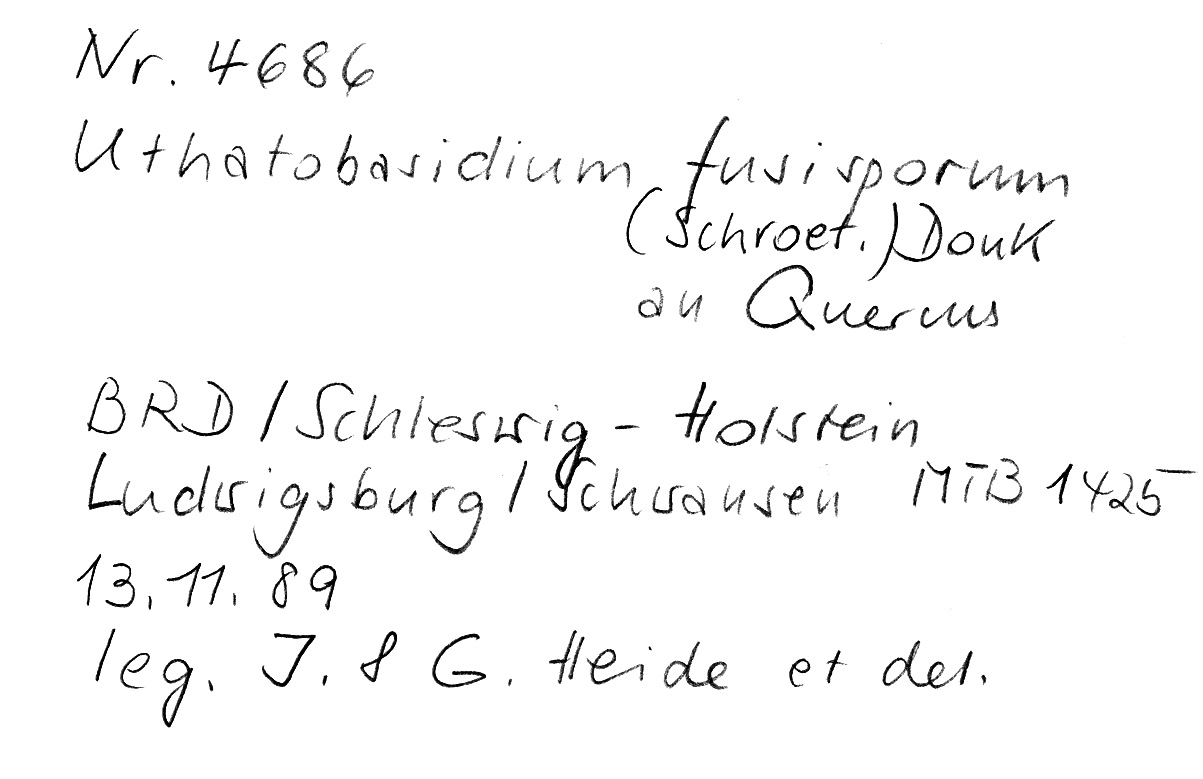 Nr. 4686
Uthatobasidium fusisporum
(Schroet.) Donk
an Quercus
BRD / Schleswig - Holstein
Ludwigsburg / Schwansen MTB 1425
13.11.89
leg. J. & G. Heide et det.